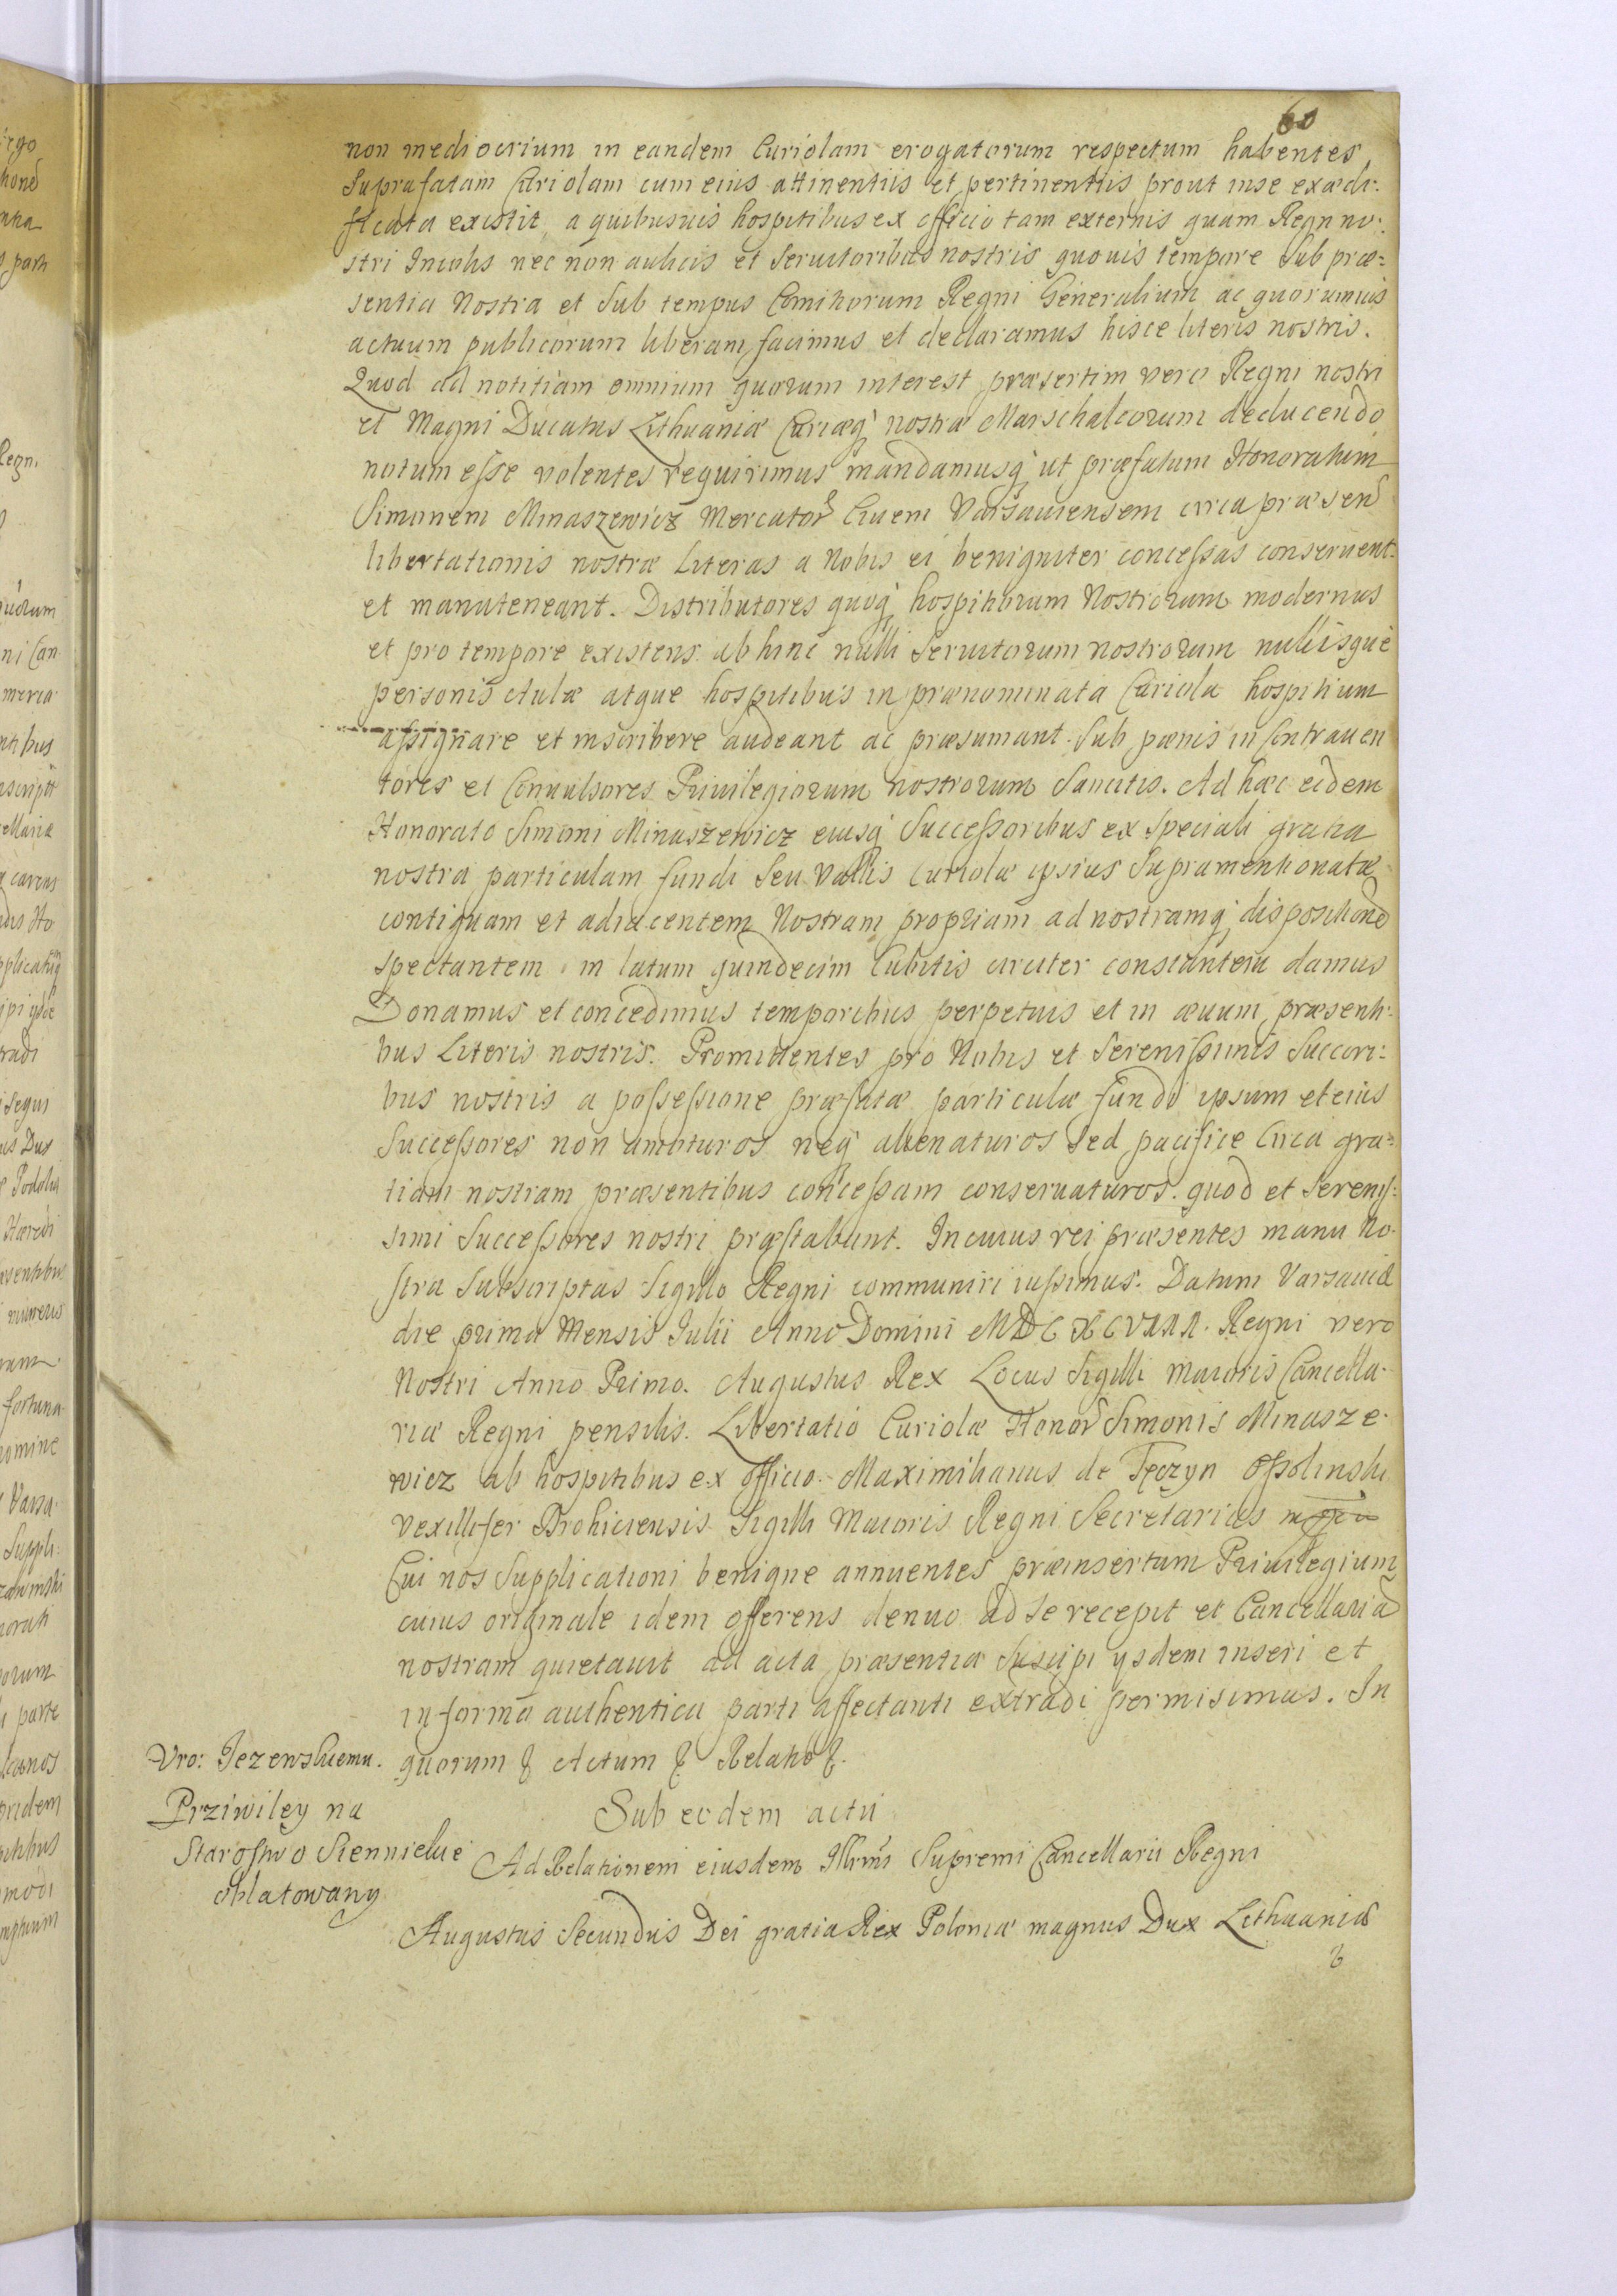 60
non mediocrium in eandem Curiolam erogatorum respectum habentes,
Suprafatam Curiolam cum eius attinentiis et pertinentiis prout in se exædi-
ficata existit, a quibusuis hospitibus ex officio tam externis quam Regn no-
stri Incolis nec non aulicis et Seruitoribus nostris quouis tempore Sub præ=
sentia Nostra et Sub tempus Comitiorum Regni Generalium ac quorumuis
actuum publicorum liberam facimus et declaramus hisce literis nostris.
Quod ad notitiam omnium quorum interest præsertim vero Regni nostri
et Magni Ducatus Lithuaniæ Curiæq nostræ Marschalcorum deducendo
notum esse volentes requirimus mandamusq ut præfatum Honoratum
Simonem Minaszewicz Mercator Ciuem Varsauiensem circa præsen
libertationis nostræ Literas a Nobis ei benigniter concessas conseruent
et manuteneant. Distributores quoq hospitiorum Nostrorum modernus
et pro tempore existens ab hinc nulli Seruitorum nostrorum nullisque
personis Aulæ atque hospitibus in prænominata Curiola hospitium
assignare et inscribere audeant ac præsumant. Sub pænis in Contrauen
tores et Conuulsores Priuilegiorum nostrorum Sancitis. Ad hæc eidem
Honorato Simoni Minaszewicz eiusq Successoribus ex Speciali gratia
nostra particulam fundi Seu Vallis Curiolæ ipsius Supramentionatæ
contiguam et adiacentem Nostram propriam ad nostramq dispositione
spectantem in latum quindecim Cubitis circiter constantem damus
Donamus et concedimus temporibus perpetuis et in æuum præsenti-
bus Literis nostris. Promittentes pro Nobis et Serenissimis Succori-
bus nostris a possessione præfatæ particulæ fundi ipsum et eius
Successores non amoturos neq alienaturos Sed pacifice Circa gra=
tiam nostram præsentibus concessam conseruaturos. quod et Serenis-
simi Successores nostri præstabunt. In cuius rei præsentes manu No-
stra Subscriptas Sigillo Regni communiri iussimus. Datum Varsauiæ
die prima Mensis Julii Anno Domini MDCXCVIII. Regni vero
Nostri Anno Primo. Augustus Rex Locus Sigilli maioris Cancella-
riæ Regni pensilis. Libertatio Curiolæ Honor Simonis Minasze-
wicz ab hospitibus ex officio. Maximilianus de Tęczyn Ossolinski
vexillifer Drohiciensis Sigilli Maioris Regni Secretarius mppria
Cui nos Supplicationi benigne annuentes præinsertum Priuilegium
cuius originale idem offerens denuo ad se recepit et Cancellaria
nostram quietauit ad acta præsentia Suscipi ysdem inseri et
in forma authentica parti affectanti extradi permisimus. In
quorum & Actum & Relatio &.
Vro: Jezewskiemu.
Prziwiley na
Starostwo Siennickie
oblatowany
Sub eodem actu
Ad Relationem eiusdem Illrmi Supremi Cancellarii Regni
Augustus Secundus Dei gratia Rex Poloniæ magnus Dux Lithuaniæ
&